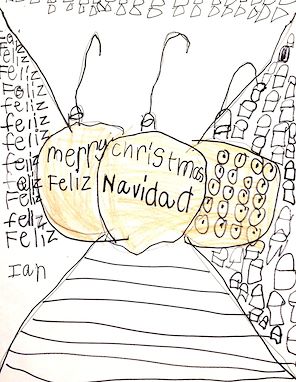 Feliz
Feliz
Feliz
Feliz
Feliz
feliz
feliz
feliz
feliz
feliz
feliz
feliz
Feliz
merry christmas
Feliz Navidad
Ian